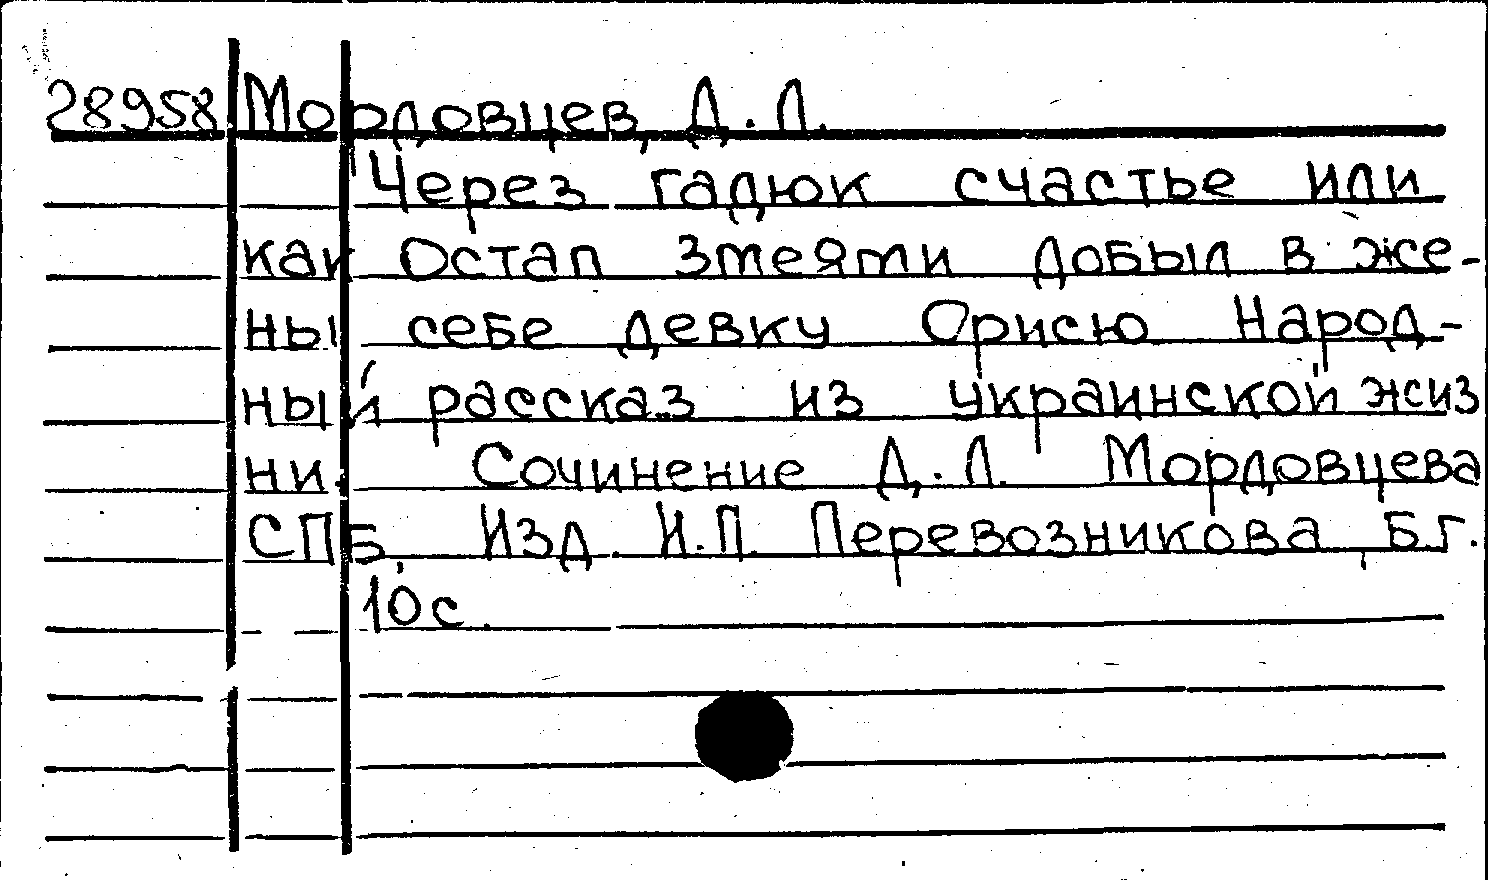 28958 Мордовцев, Д.Л.
Через гадюк счастье или
как Остап змеями добыл в же-
ны себе девку Орисю Народ-
ный рассказ из украинской жиз
ни. Сочинение Д.Л. Мордовцева
СПБ, Изд. И.П. Перевозникова, Б.г.
10с.